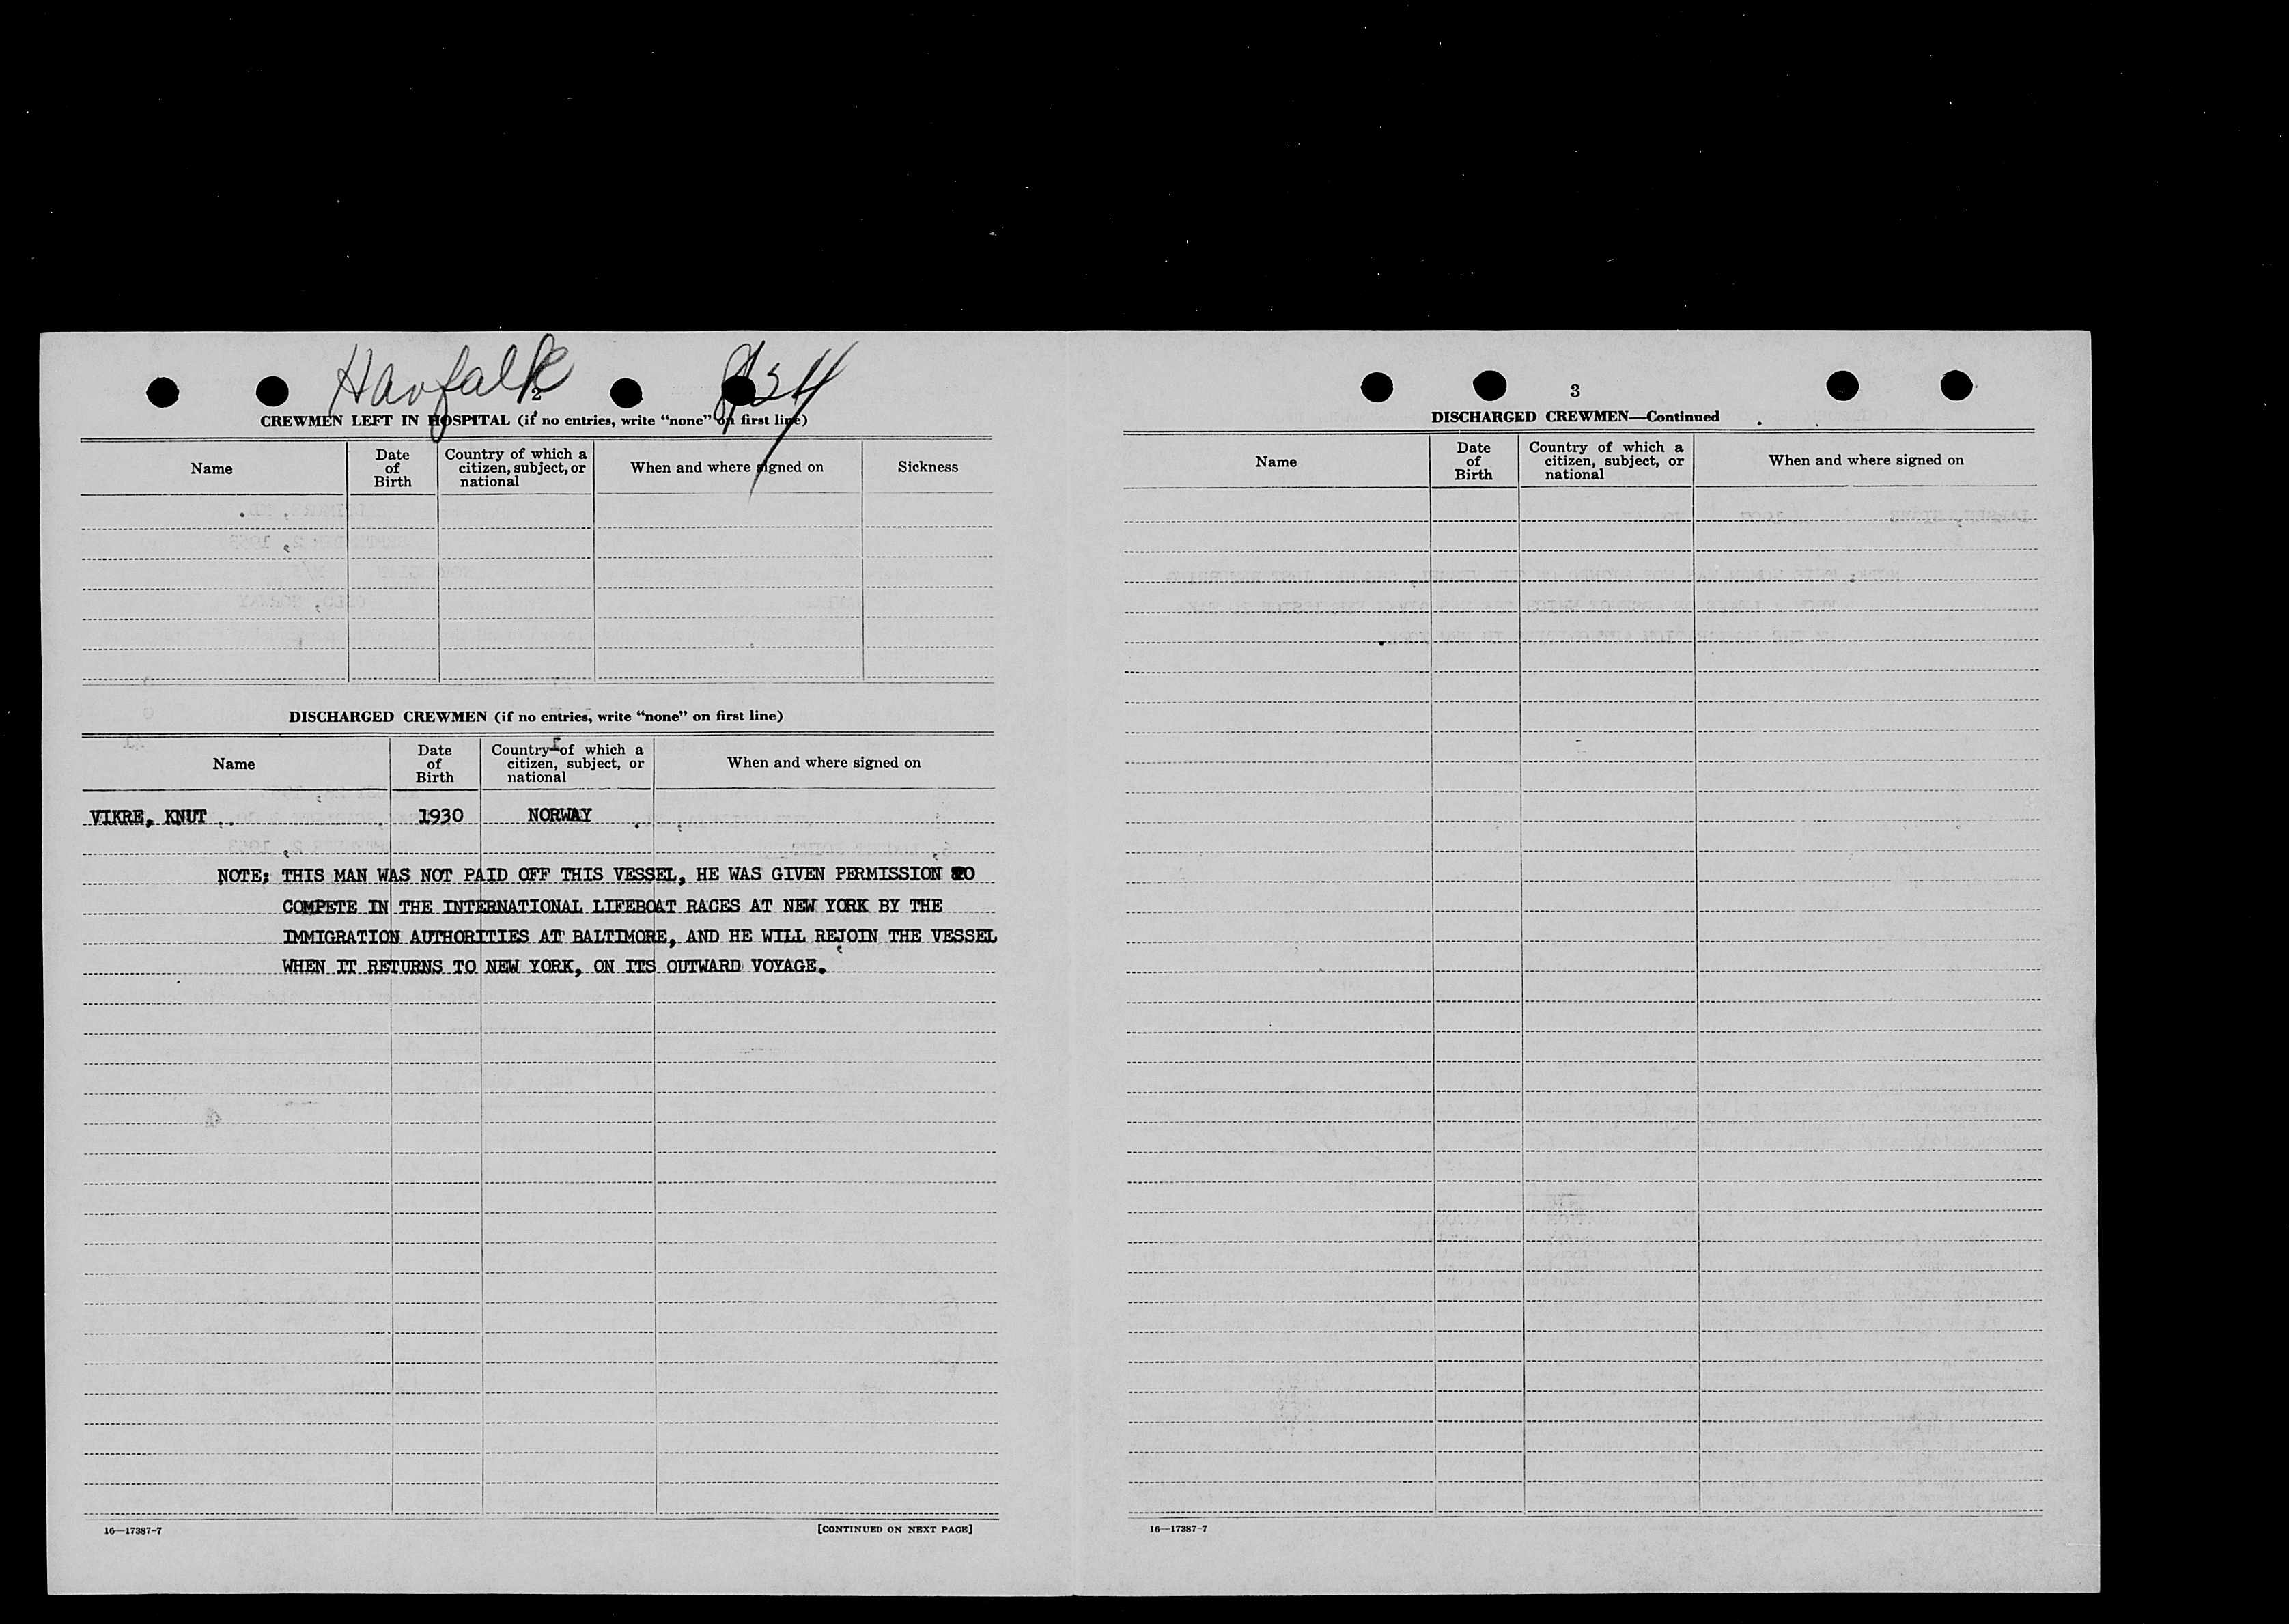 Havfalk
2
CREWMEN LEFT IN HOSPITAL (if no entries, write "none" on first line)
Name
Date of Birth
Country of which a citizen, subject, or national
When and where signed on
Sickness
DISCHARGED CREWMEN (if no entries, write "none" on first line)
Name
Date of Birth
Country of which a citizen, subject, or national
When and where signed on
VIKRE, KNUT 1930 NORWAY
NOTE: THIS MAN WAS NOT PAID OFF THIS VESSEL, HE WAS GIVEN PERMISSION TO
COMPETE IN THE INTERNATIONAL LIFEBOAT RACES AT NEW YORK BY THE
IMMIGRATION AUTHORITIES AT BALTIMORE, AND HE WILL REJOIN THE VESSEL
WHEN IT RETURNS TO NEW YORK, ON ITS OUTWARD VOYAGE.
16—17387-7
[CONTINUED ON NEXT PAGE]
3
DISCHARGED CREWMEN—Continued
Name
Date of Birth
Country of which a citizen, subject, or national
When and where signed on
16—17387-7